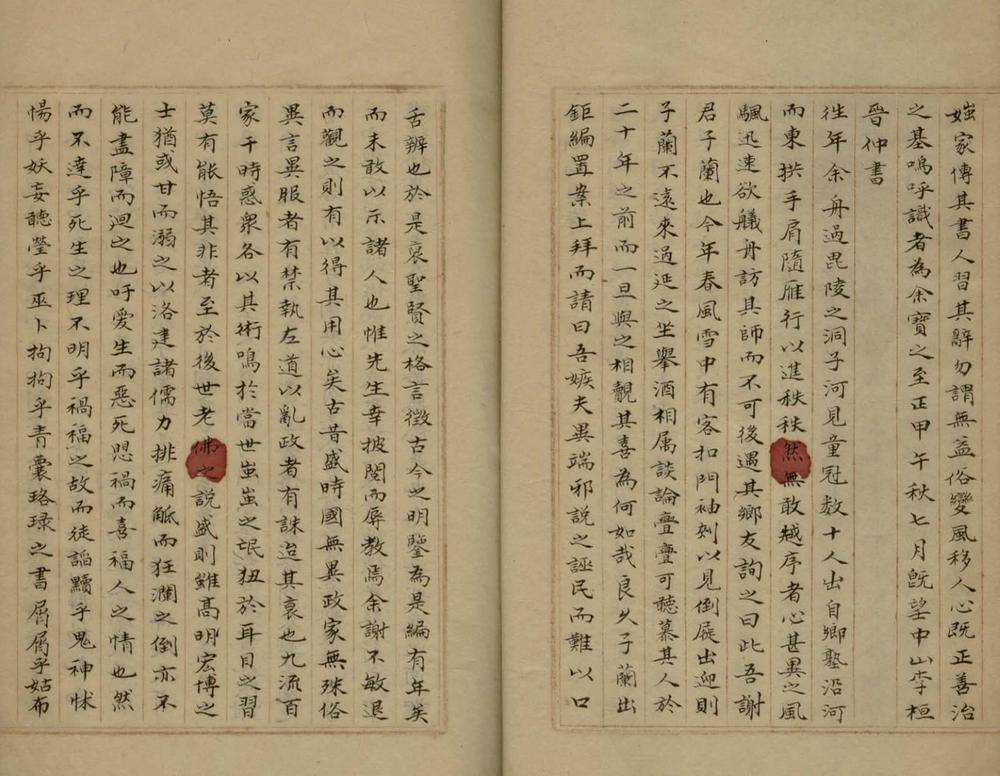 㛐家傳其書人習其辭勿謂無益俗變風移人心既正善治
之基嗚呼識者為余寶之至正甲午秋七月既望中山李桓
晉仲書
徃年余舟過毘陵之洞子河見童冠数十人出自鄉塾沿河
而東拱手肩隨雁行以進秩秩然無敢越序者心甚異之風
颿迅速欲艤舟訪其師而不可後遇其鄉友詢之曰此吾謝
君子蘭也今年春風雪中有客扣門袖刺以見倒屣出迎則
子蘭不遠來過延之坐舉酒相属談論亹亹可聽慕其人於
二十年之前而一旦與之相覿其喜為何如哉良久子蘭出
鉅編置案上拜而請曰吾嫉夫異端邪說之誣民而難以口
舌辨也於是裒聖賢之格言徴古今之明鑒為是編有年矣
而未敢以示諸人也惟先生幸披閱而辱教焉余謝不敏退
而觀之則有以得其用心矣古昔盛時國無異政家無殊俗
異言異服者有禁執左道以亂政者有誅迨其衰也九流百
家干時惑衆各以其術鳴於當世蚩蚩之氓狃於耳目之習
莫有能悟其非者至於後世老佛之説盛則雖髙明宏博之
士猶或甘而溺之以洛建諸儒力排痛觝而狂瀾之倒亦不
能盡障而迴之也吁愛生而惡死惡禍而喜福人之情也然
而不達乎死生之理不明乎禍福之故而徒謟黷乎鬼神怵
惕乎妖妄聽瑩乎巫卜拘拘乎青囊珞琭之書屑屑乎姑布